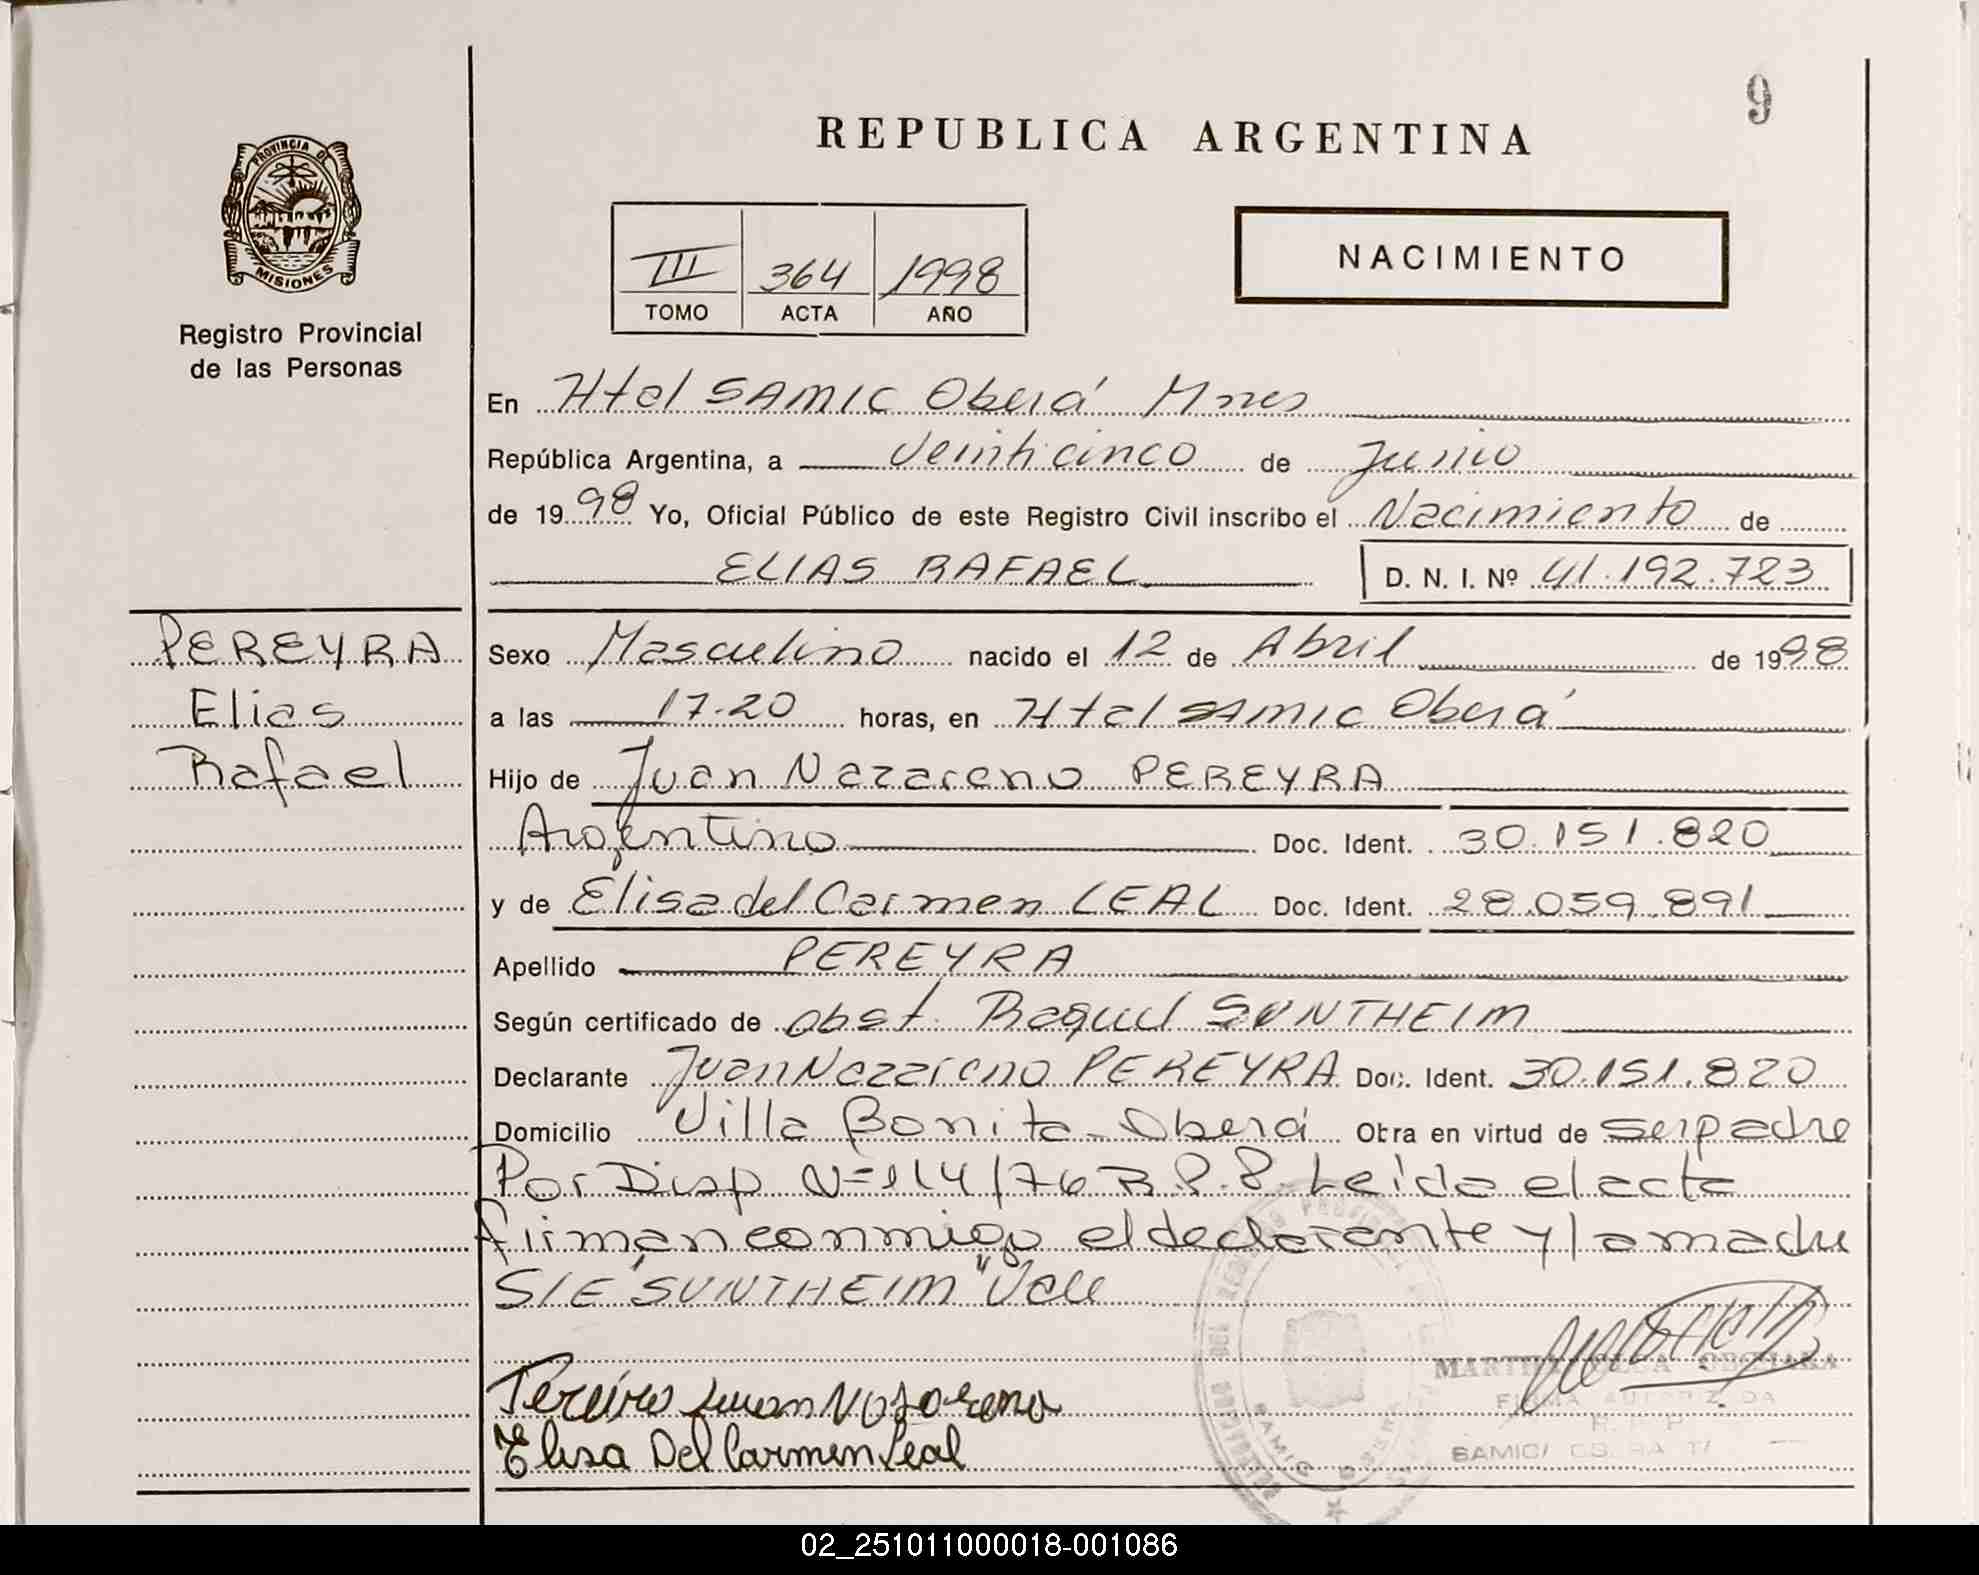 9
REPUBLICA ARGENTINA
PROVINCIA D
MISIONES
Registro Provincial
de las Personas
III 364 1998
TOMO ACTA AÑO
NACIMIENTO
En Htal SAMIC Oberá Mnes
República Argentina, a Veinticinco de Junio
de 1998 Yo, Oficial Público de este Registro Civil inscribo el Nacimiento de
ELIAS RAFAEL D. N. I. Nº 41.192.723
PEREYRA
Elias
Rafael
Sexo Masculino nacido el 12 de Abril de 1998
a las 17.20 horas, en Htal SAMIC Oberá
Hijo de Juan Nazareno PEREYRA
Argentino Doc. Ident. 30.151.820
y de Elisa del Carmen LEAL Doc. Ident. 28.059.891
Apellido PEREYRA
Según certificado de obst. Raquel SUNTHEIM
Declarante Juan Nazareno PEREYRA Doc. Ident. 30.151.820
Domicilio Villa Bonita Oberá Obra en virtud de ser padre
Por Disp N=114/76 R.P.P. Leída el acta
firman conmigo el declarante y la madre
S/E "SUNTHEIM" Vale
Juan
Elisa Del Carmen Leal
FIRMA AUTORIZADA
R. P. P.
SAMIC
02_251011000018-001086